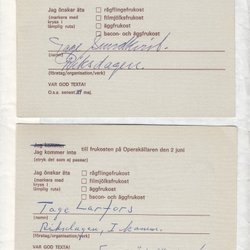 Jag önskar äta
(markera med kryss i lämplig ruta)
rågflingefrukost
filmjölksfrukost
äggfrukost
bacon- och äggfrukost
Tage Sundkvist.
Riksdagen.
(företag/organisation/verk)
VAR GOD TEXTA!
O.s.a. senast maj.
Jag kommer
Jag kommer inte
till frukosten på Operakällaren den 2 juni
(stryk det som ej passar)
Jag önskar äta
(markera med kryss i lämplig ruta)
rågflingefrukost
filmjölksfrukost
äggfrukost
bacon- och äggfrukost
Tage Larfors
Riksdagen, I kamm.
(företag/organisation/verk)
VAR GOD TEXTA!